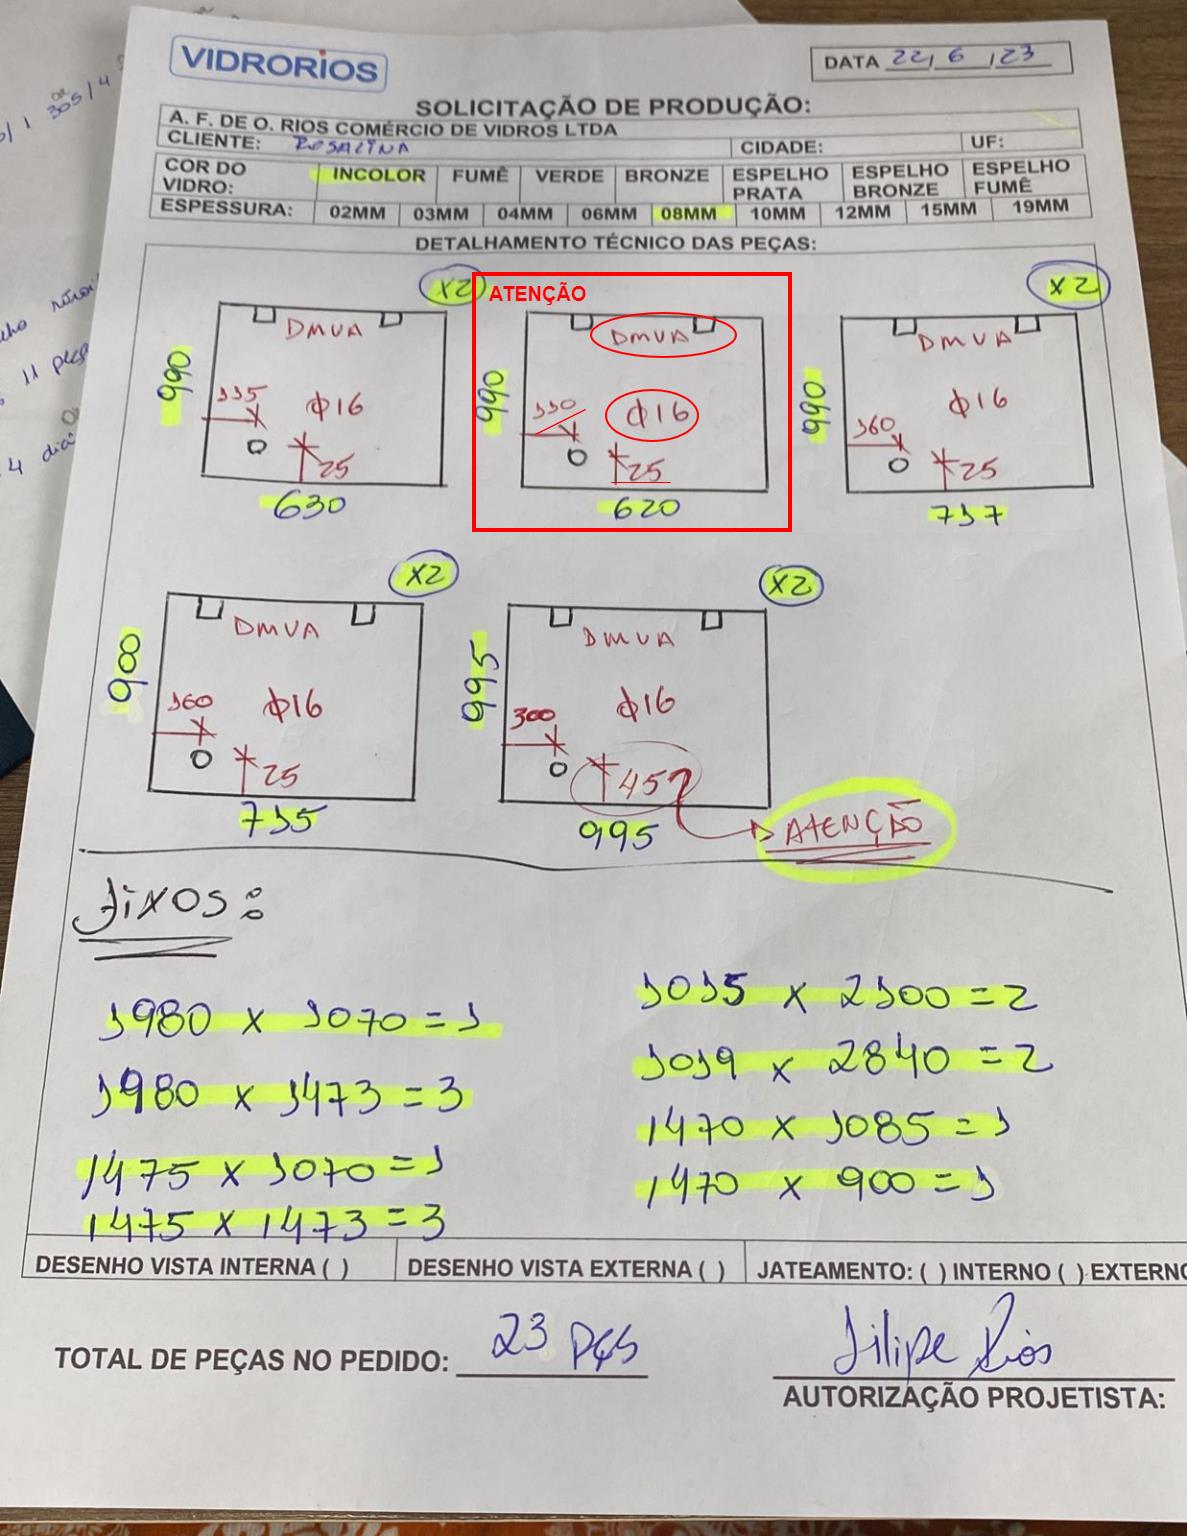 VIDRORIOS
DATA 22/6/23
SOLICITAÇÃO DE PRODUÇÃO:
A. F. DE O. RIOS COMÉRCIO DE VIDROS LTDA
CLIENTE: ROSALINA CIDADE: UF:
COR DO VIDRO: INCOLOR FUMÊ VERDE BRONZE ESPELHO PRATA ESPELHO BRONZE ESPELHO FUMÊ
ESPESSURA: 02MM 03MM 04MM 06MM 08MM 10MM 12MM 15MM 19MM
DETALHAMENTO TÉCNICO DAS PEÇAS:
X2
DMVA
990
115
ф16
25
630
ATENÇÃO
DMVA
990
110
ф16
25
620
X2
DMVA
990
160
ф16
25
717
X2
DMVA
900
160
ф16
25
715
X2
DMVA
995
300
ф16
45?
995
ATENÇÃO
FIXOS:
1980 x 1070 = 1
1980 x 1473 = 3
1475 x 1070 = 1
1475 x 1473 = 3
1015 x 2100 = 2
1019 x 2840 = 2
1470 x 1085 = 1
1470 x 900 = 1
DESENHO VISTA INTERNA ( ) DESENHO VISTA EXTERNA ( ) JATEAMENTO: ( ) INTERNO ( ) EXTERNO
TOTAL DE PEÇAS NO PEDIDO: 23 PÇS
Filipe Rios
AUTORIZAÇÃO PROJETISTA:
305/4
11 peça
4